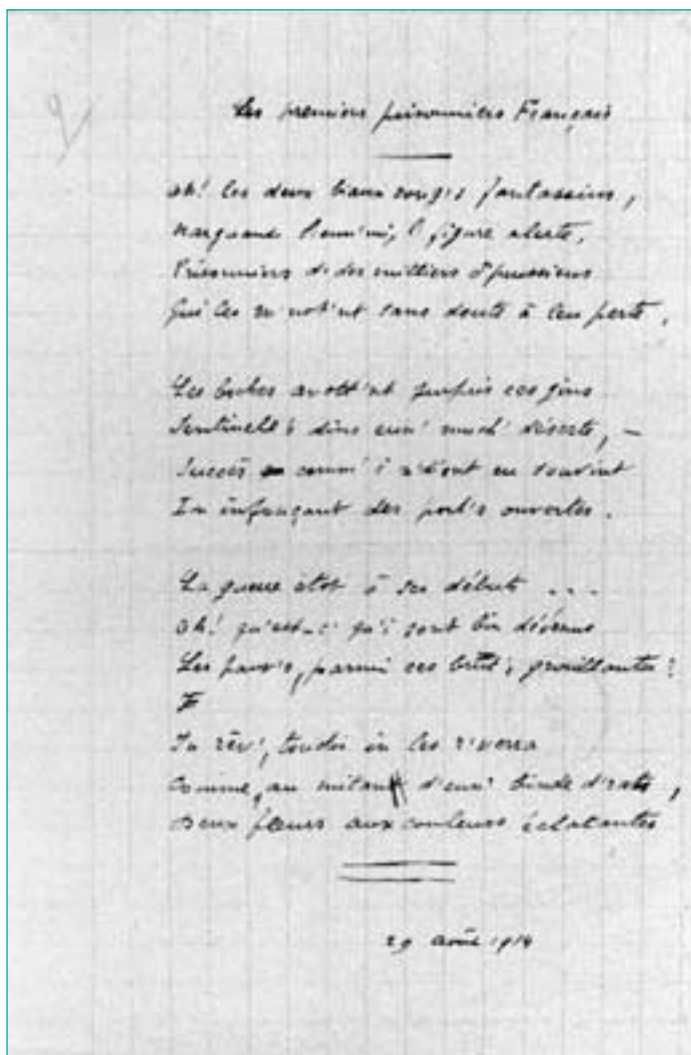 Les premiers prisonniers Français
Oh! les deux biaux rouges fantassins,
Narguando l'enn'mi, l' figure alerte,
Prisonniers d' des milliers d' prussiens
Qui les m'not'nt sans doute à leu perte,
Les boches avott'nt surpris ces gins
Sentinell's dins ein' much' déserte, –
Succès comm' i n'd'ont eu souvint
In infonçant des port's ouvertes.
La guerre étot à ses débuts ...
Oh! qu'est-c' qu'i sont bin dév'nus
Les pauv's, parmi ces brut's grouillantes?
In rêv', toudis in les r'verra
Comme, au mitan d'eun' binde d'rats,
Deux fleurs aux couleurs éclatantes
29 août 1914